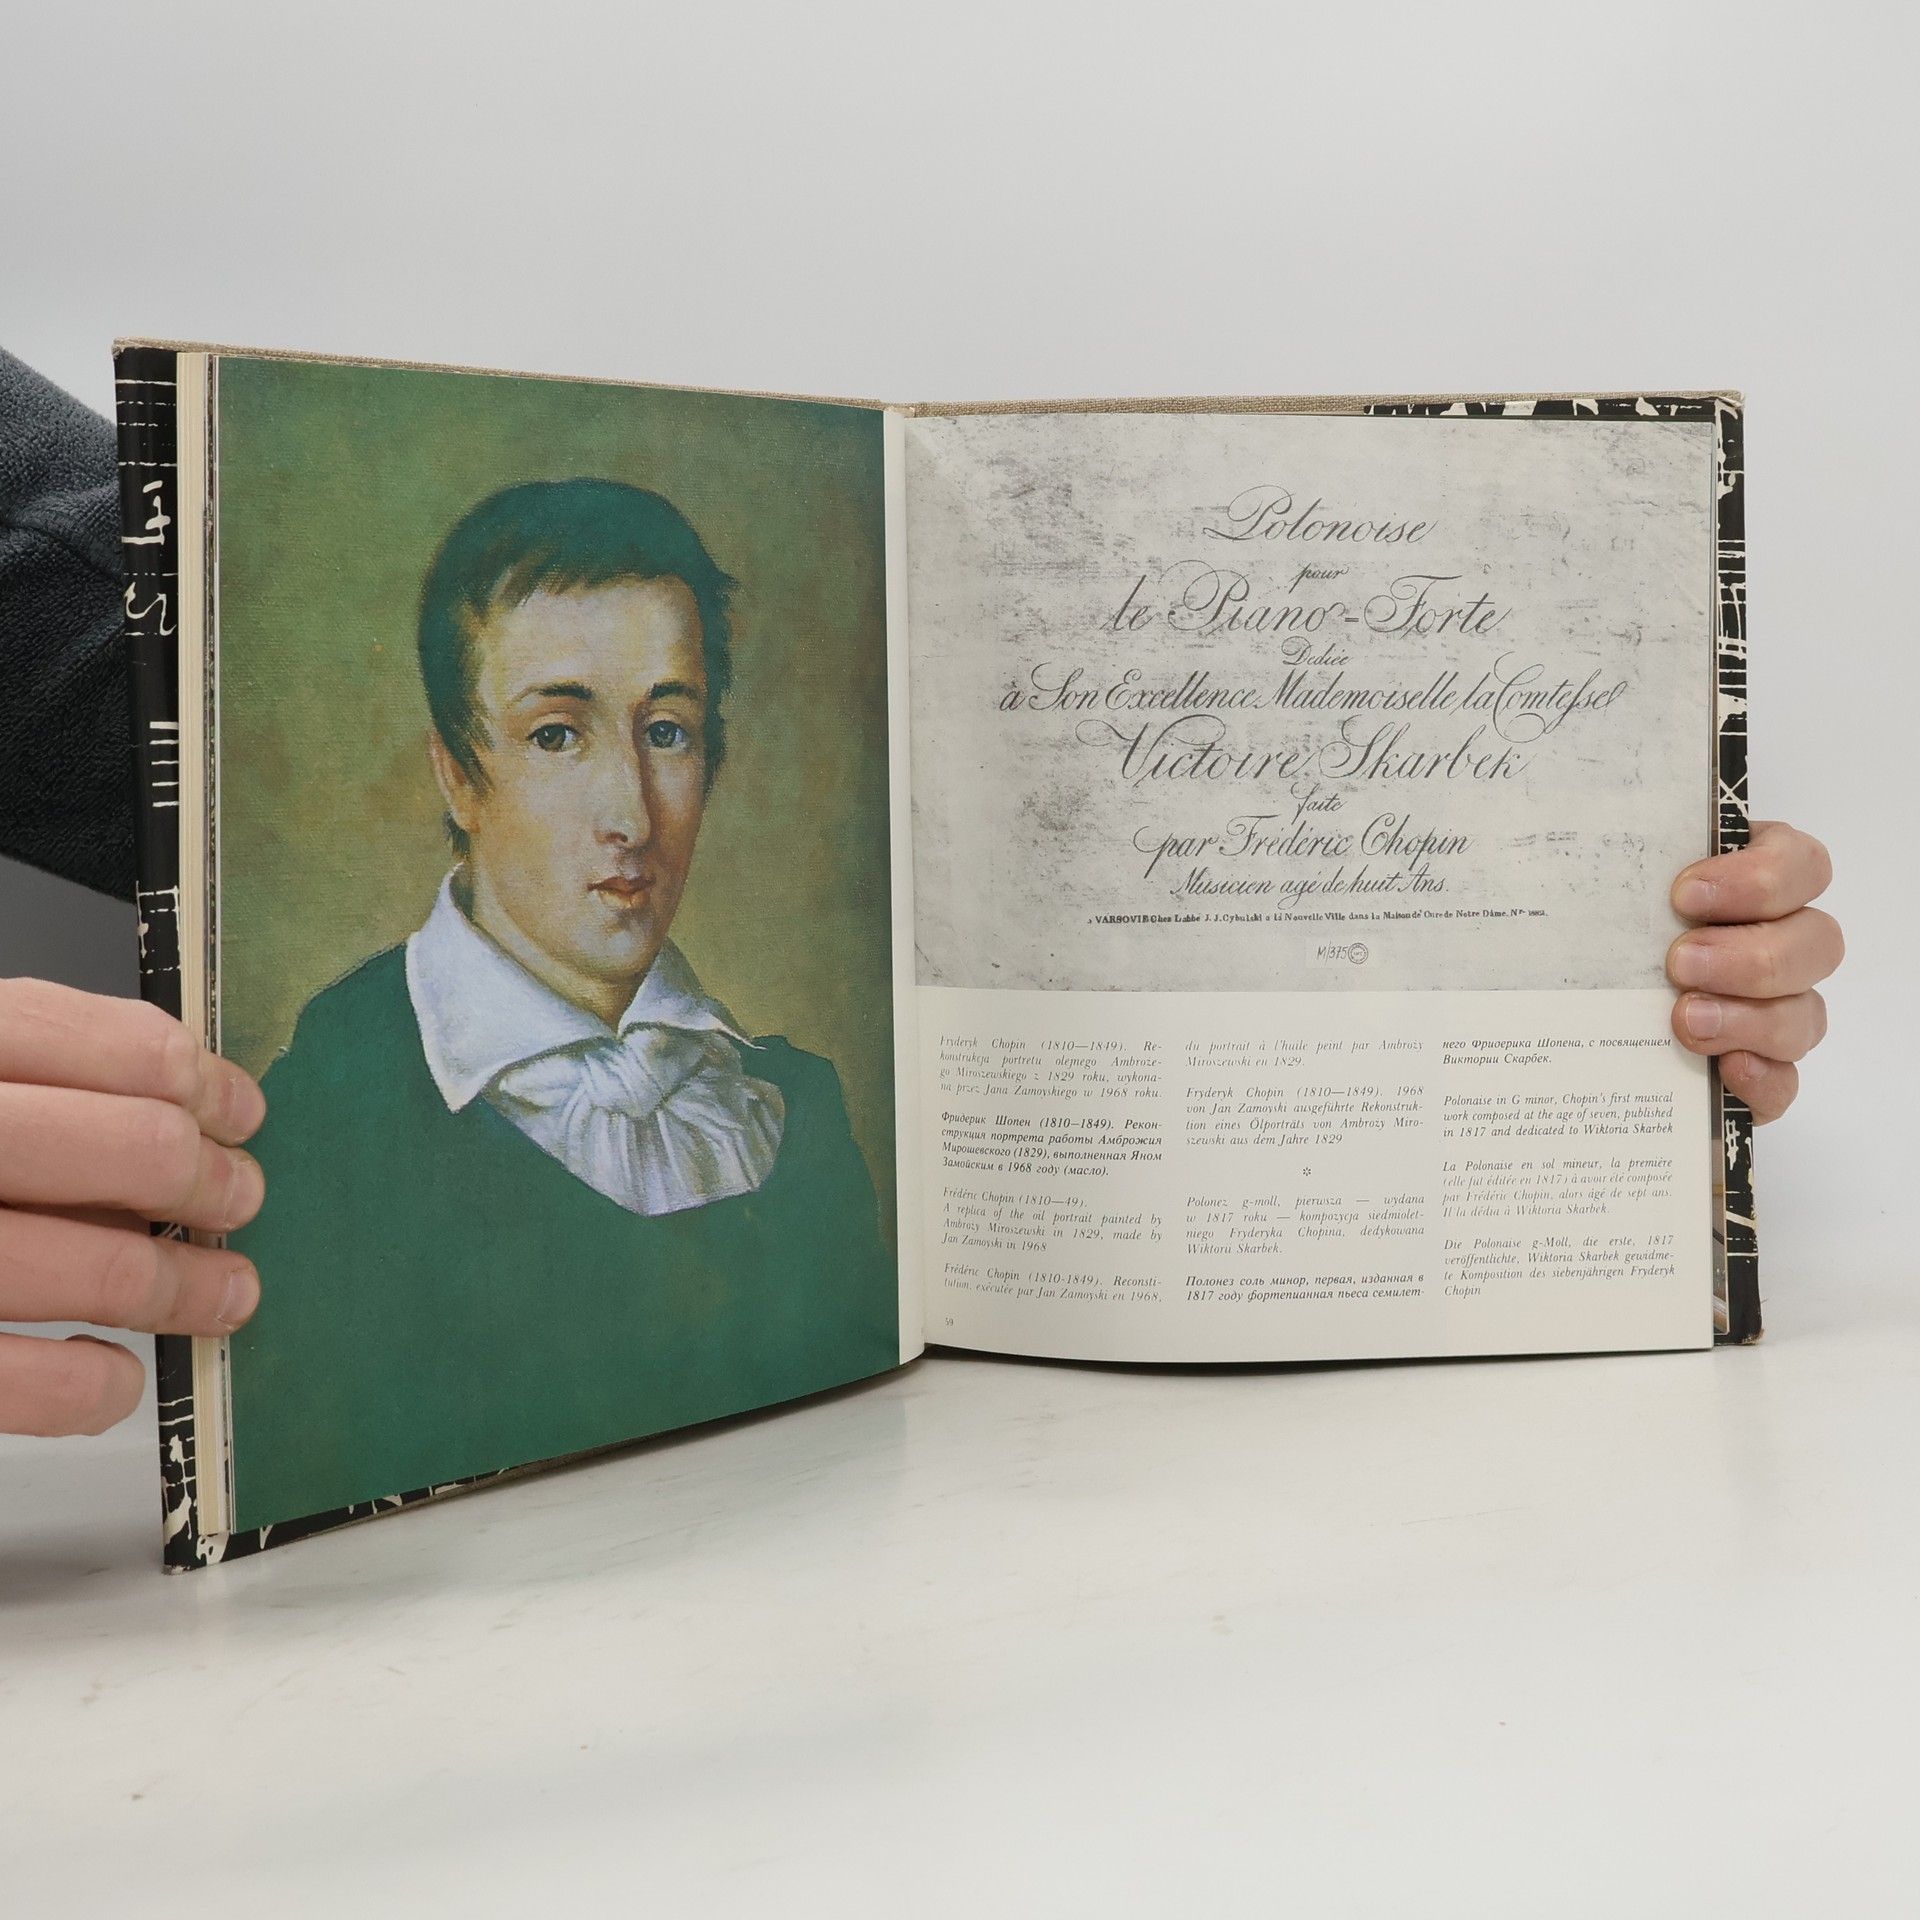 Polonoise
pour
le Piano-Forte
Dediée
à Son Excellence Mademoiselle la Comtesse
Victoire Skarbek
faite
par Frédéric Chopin
Musicien agé de huit Ans.
à VARSOVIE Chez L'abbé J. J. Cybulski a la Nouvelle Ville dans la Maison de Cure de Notre Dâme.
M/375
Fryderyk Chopin (1810—1849). Re-
konstrukcja portretu olejnego Ambroże-
go Miroszewskiego z 1829 roku, wykona-
na przez Jana Zamoyskiego w 1968 roku.
Фридерик Шопен (1810—1849). Рекон-
струкция портрета работы Амброжия
Мирошевского (1829), выполненная Яном
Замойским в 1968 году (масло).
Frédéric Chopin (1810—49).
A replica of the oil portrait painted by
Ambroży Miroszewski in 1829, made by
Jan Zamoyski in 1968
Frédéric Chopin (1810-1849). Reconsti-
tution, exécutée par Jan Zamoyski en 1968,
du portrait à l'huile peint par Ambroży
Miroszewski en 1829.
Fryderyk Chopin (1810—1849). 1968
von Jan Zamoyski ausgeführte Rekonstruk-
tion eines Ölporträts von Ambroży Miro-
szewski aus dem Jahre 1829
*
Polonez g-moll, pierwsza — wydana
w 1817 roku — kompozycja siedmiolet-
niego Fryderyka Chopina, dedykowana
Wiktorii Skarbek.
Полонез соль минор, первая, изданная в
1817 году фортепианная пьеса семилет-
него Фридерика Шопена, с посвящением
Виктории Скарбек.
Polonaise in G minor, Chopin's first musical
work composed at the age of seven, published
in 1817 and dedicated to Wiktoria Skarbek
La Polonaise en sol mineur, la première
(elle fut éditée en 1817) à avoir été composée
par Frédéric Chopin, alors âgé de sept ans.
Il la dédia à Wiktoria Skarbek.
Die Polonaise g-Moll, die erste, 1817
veröffentlichte, Wiktoria Skarbek gewidme-
te Komposition des siebenjährigen Fryderyk
Chopin
59